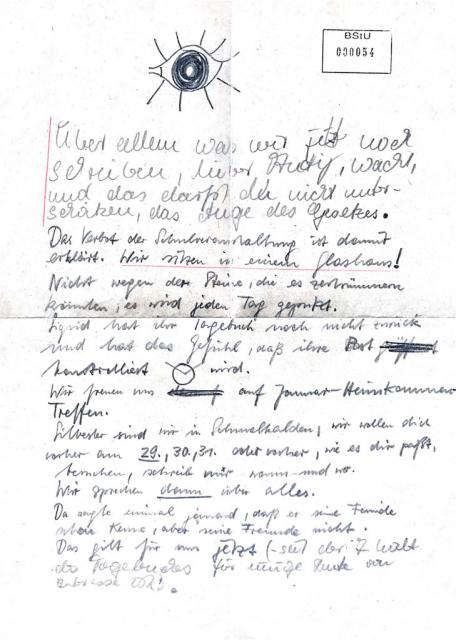 BStU
000054
Über allem was wir jetzt noch
schreiben, lieber Andy, wacht,
und das darfst du nicht unter-
schätzen, das Auge des Gesetzes.
Das Verbot der Schulveranstaltung ist damit
erklärt. Wir sitzen in einem Glashaus!
Nicht wegen der Steine, die es zertrümmern
könnten, es wird jeden Tag geputzt.
hat ihr Tagebuch noch nicht zurück
und hat das Gefühl, daß ihre Post
kontrolliert wird.
Wir freuen uns auf Januar-
Treffen.
Silvester sind wir in Schmalkalden, wir wollen dich
vorher am 29., 30., 31. oder vorher, wie es dir paßt,
besuchen, schreib mir wann und wo.
Wir sprechen dann über alles.
Da sagte einmal jemand, daß er seine Feinde
schon kenne, aber seine Freunde nicht.
Das gilt für uns jetzt (- seit der Inhalt
des Tagebuches für einige Leute von
Interesse ist).